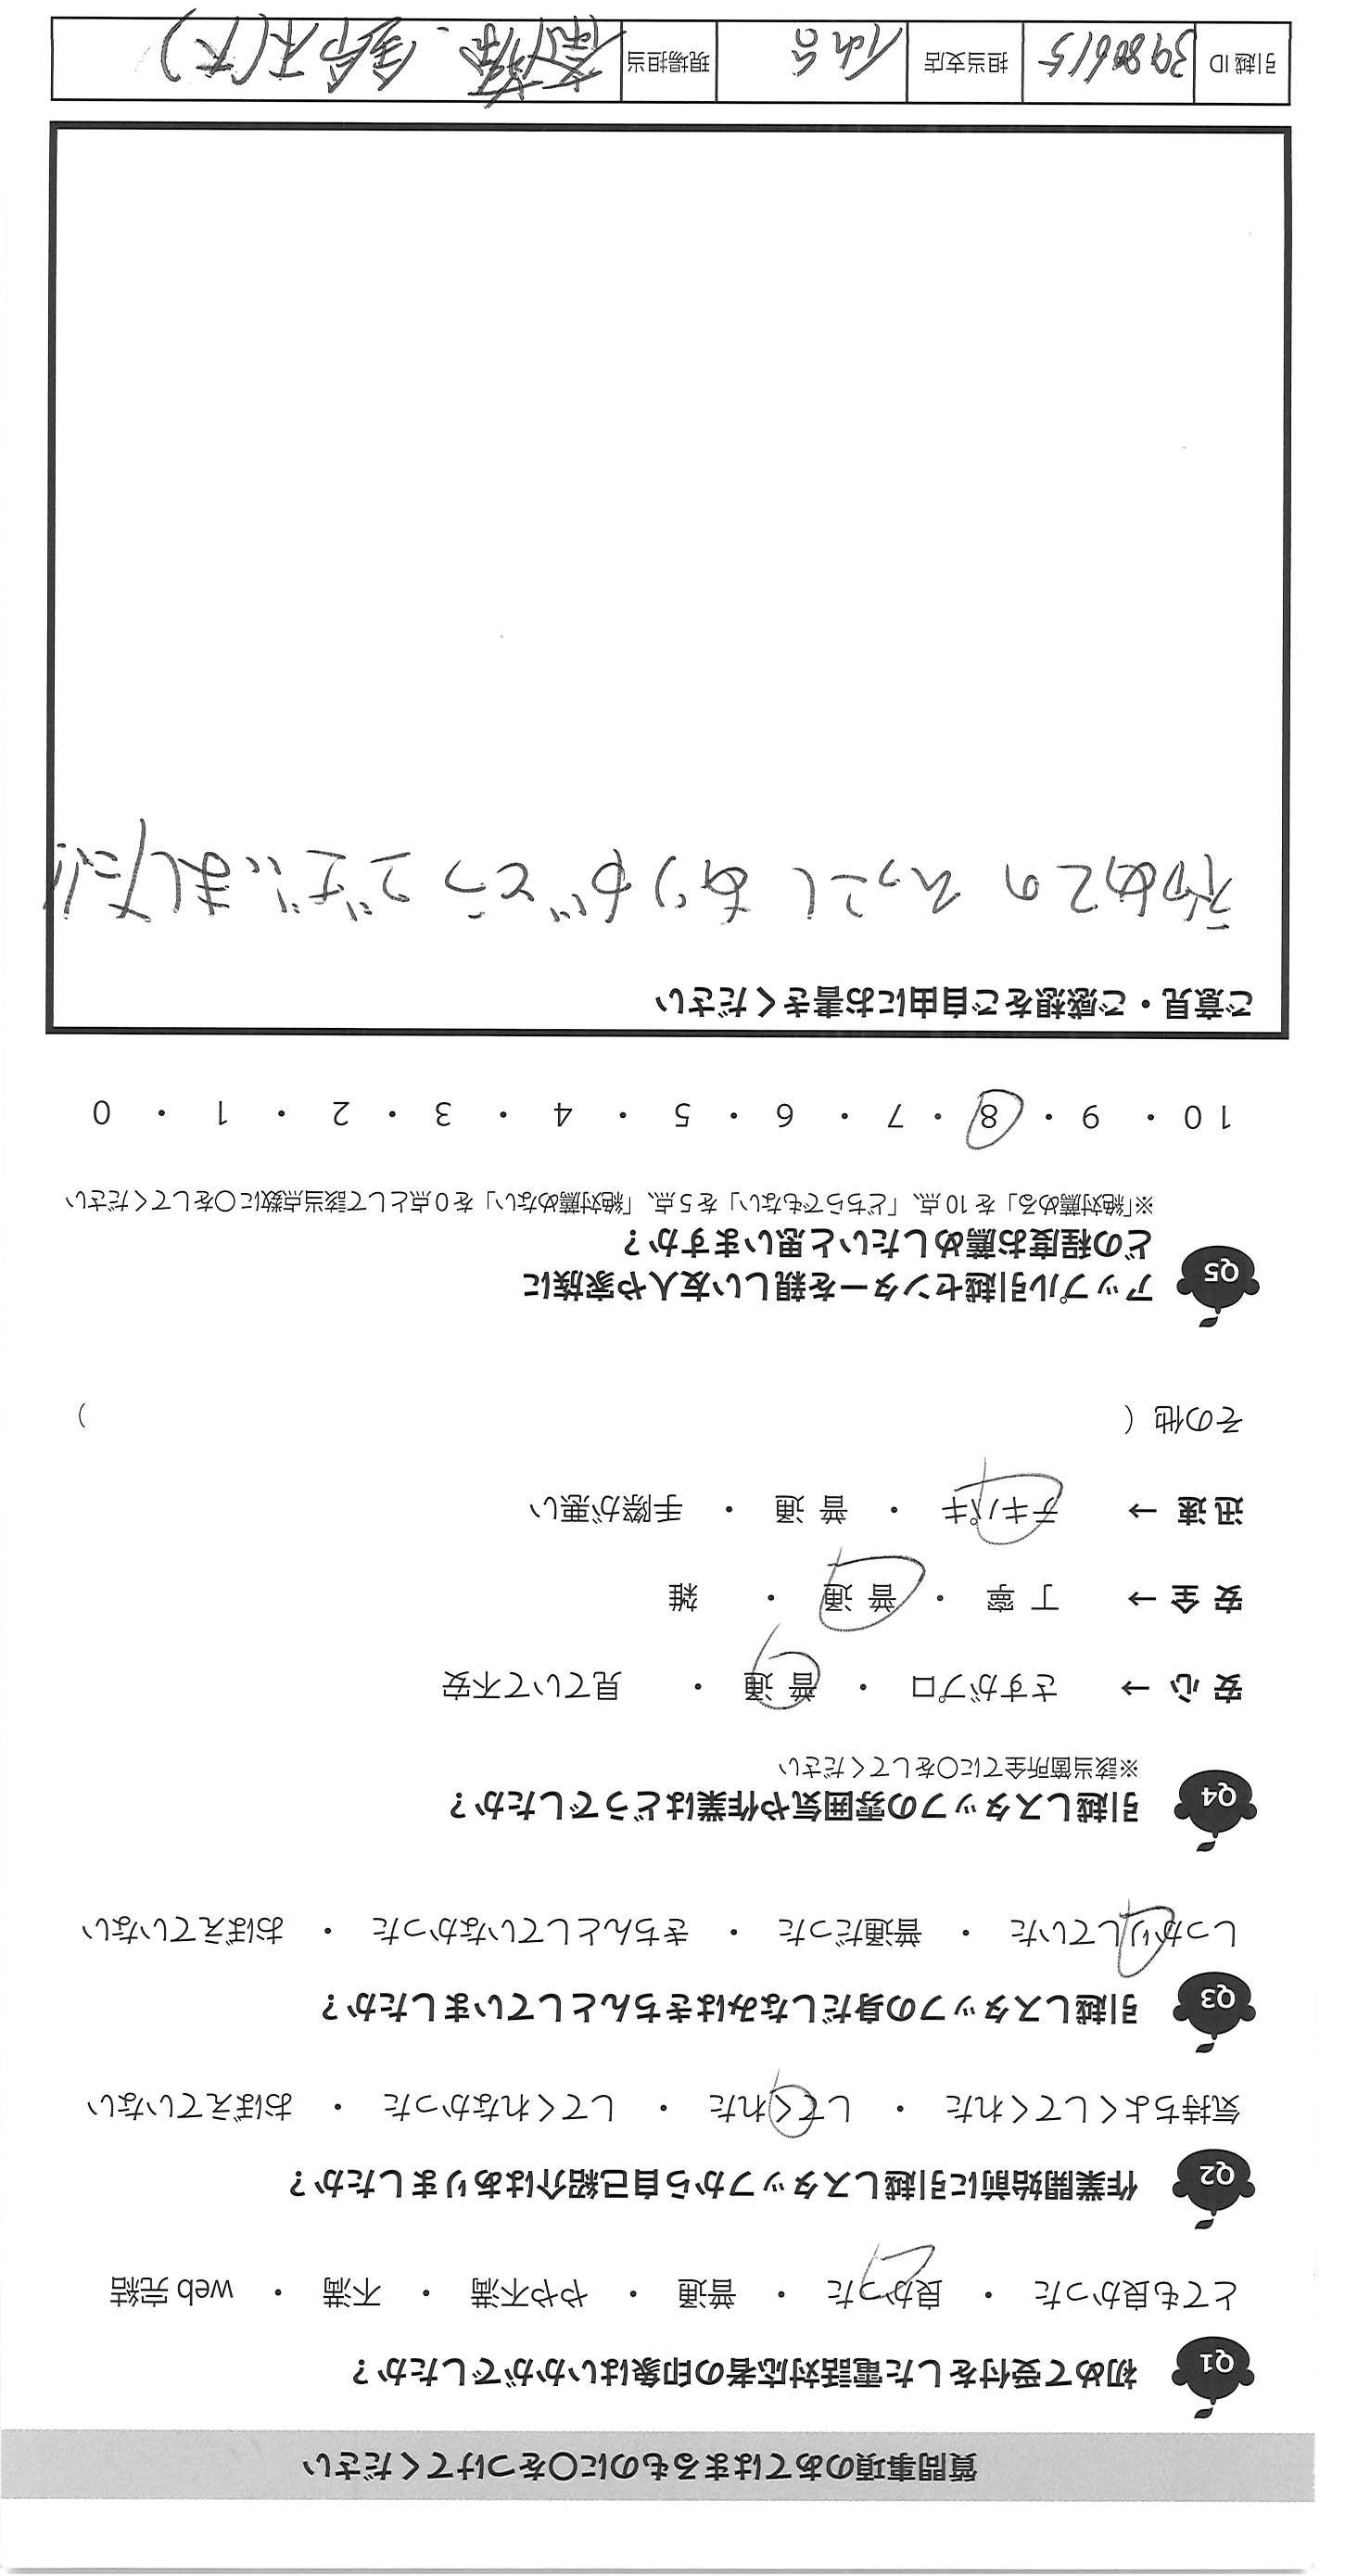 質問事項のあてはまるものに○をつけてください
Q1 初めて受付をした電話対応者の印象はいかがでしたか？
とても良かった ・ 良かった ・ 普通 ・ やや不満 ・ 不満 ・ web 完結
Q2 作業開始前に引越しスタッフから自己紹介はありましたか？
気持ちよくしてくれた ・ してくれた ・ してくれなかった ・ おぼえていない
Q3 引越しスタッフの身だしなみはきちんとしていましたか？
しっかりしていた ・ 普通だった ・ きちんとしていなかった ・ おぼえていない
Q4 引越しスタッフの雰囲気や作業はどうでしたか？
※該当箇所全てに○をしてください
安 心 → さすがプロ ・ 普 通 ・ 見ていて不安
安 全 → 丁 寧 ・ 普 通 ・ 雑
迅 速 → テキパキ ・ 普 通 ・ 手際が悪い
その他（ ）
Q5 アップル引越センターを親しい友人や家族に
どの程度お薦めしたいと思いますか？
※「絶対薦める」を 10 点、「どちらでもない」を 5 点、「絶対薦めない」を 0 点として該当点数に○をしてください
10 ・ 9 ・ 8 ・ 7 ・ 6 ・ 5 ・ 4 ・ 3 ・ 2 ・ 1 ・ 0
ご意見・ご感想をご自由にお書きください
初めてのひっこしありがとうございました!!
引越 ID 3980615 担当支店 仙台 現場担当 斎藤、鈴木(大)